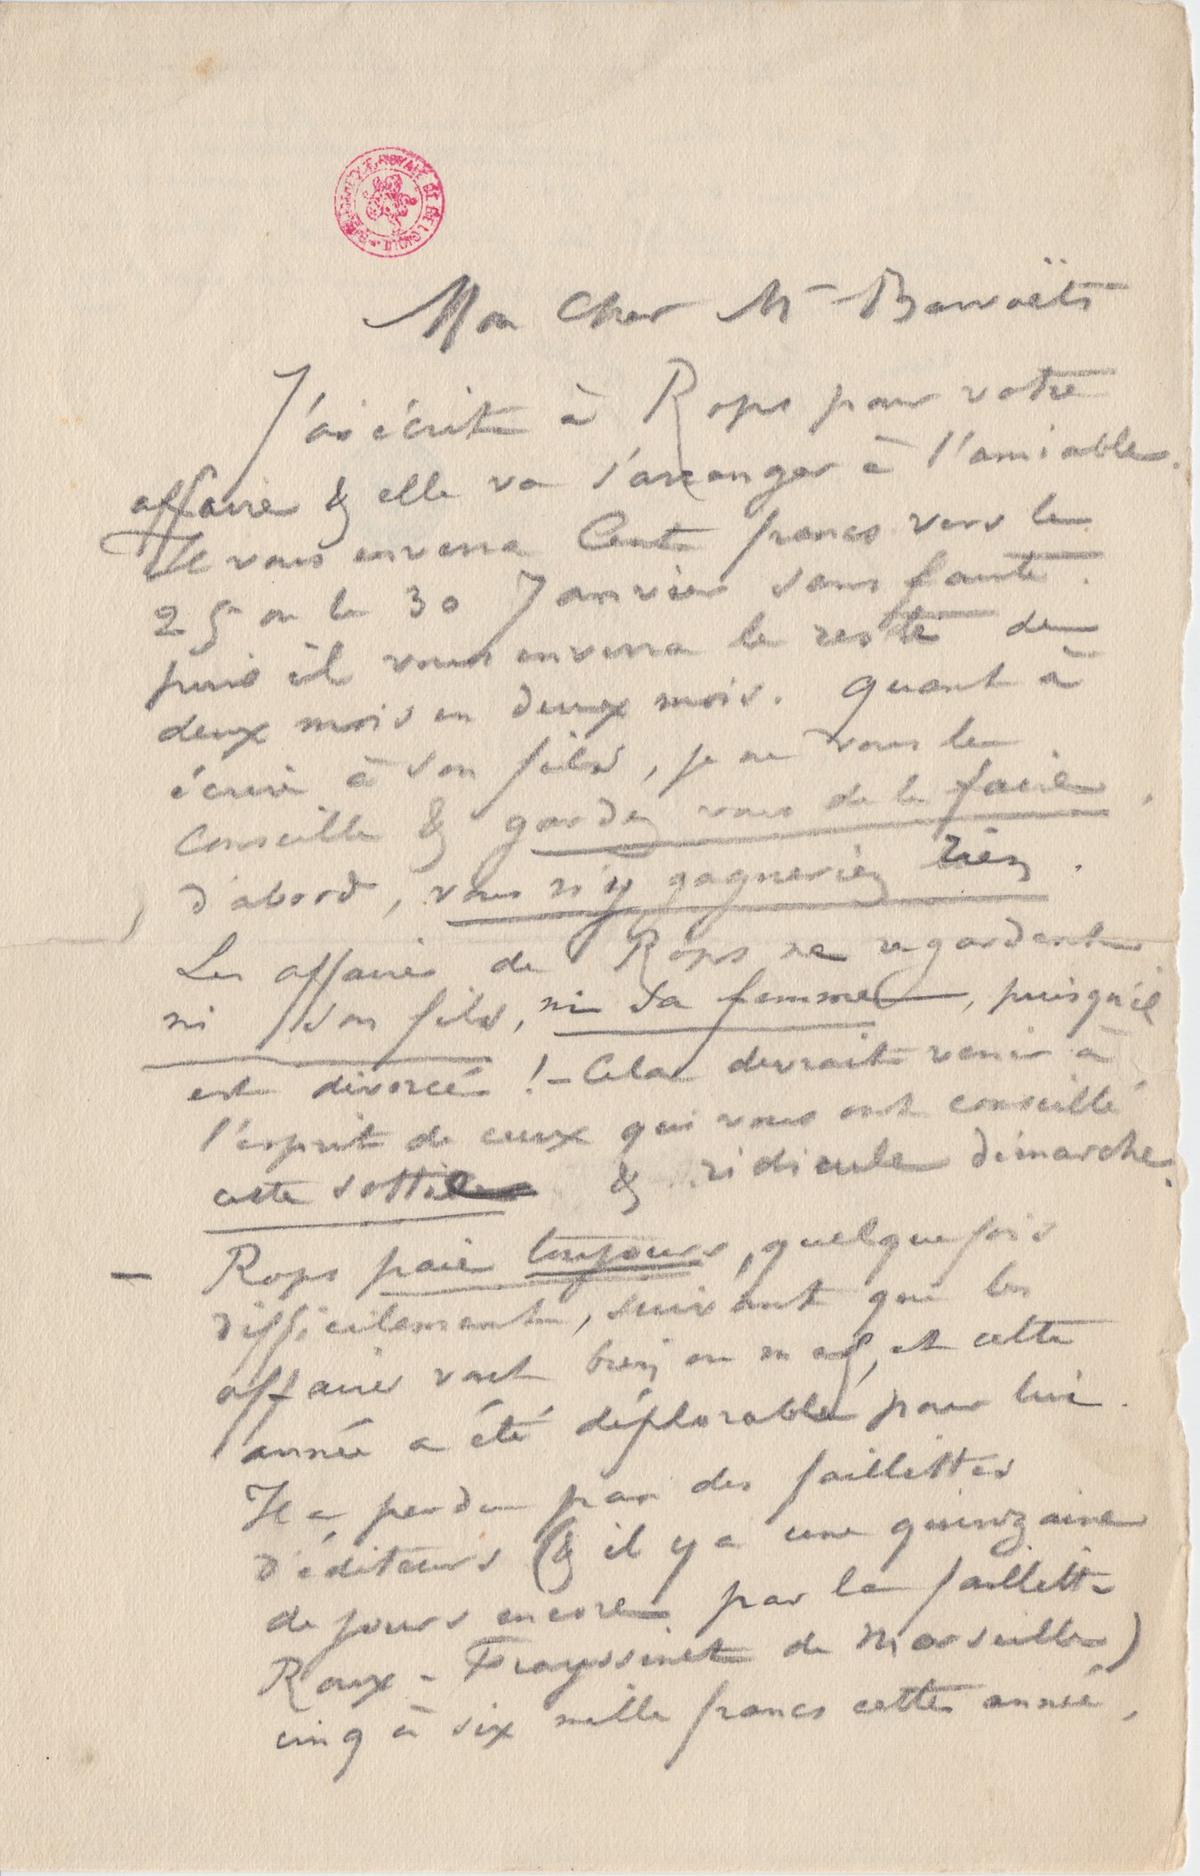 BIBLIOTHÈQUE ROYALE DE BELGIQUE
Mon Cher Mr
J'ai écrit à Rops pour votre
affaire & elle va s'arranger à l'amiable.
Il vous enverra Cent francs vers le
25 ou le 30 Janvier sans faute.
puis il vous enverra le reste de
deux mois en deux mois. Quant à
écrire à son fils, je ne vous le
conseille & gardez vous de le faire,
d'abord, vous n'y gagneriez rien.
Les affaires de Rops ne regardent
ni son fils, ni sa femme, puisqu'il
est divorcé ! – Cela devrait venir à
l'esprit de ceux qui vous ont conseillé
cette sottise & ridicule démarche.
– Rops paie toujours, quelquefois
difficilement, suivant que les
affaires vont bien ou mal, et cette
année a été déplorable pour lui.
Il a perdu par des faillittes
d'éditeurs (& il y a une quinzaine
de jours encore par la faillitte
Roux-Frayssinet de Marseille)
cinq à six mille francs cette année,